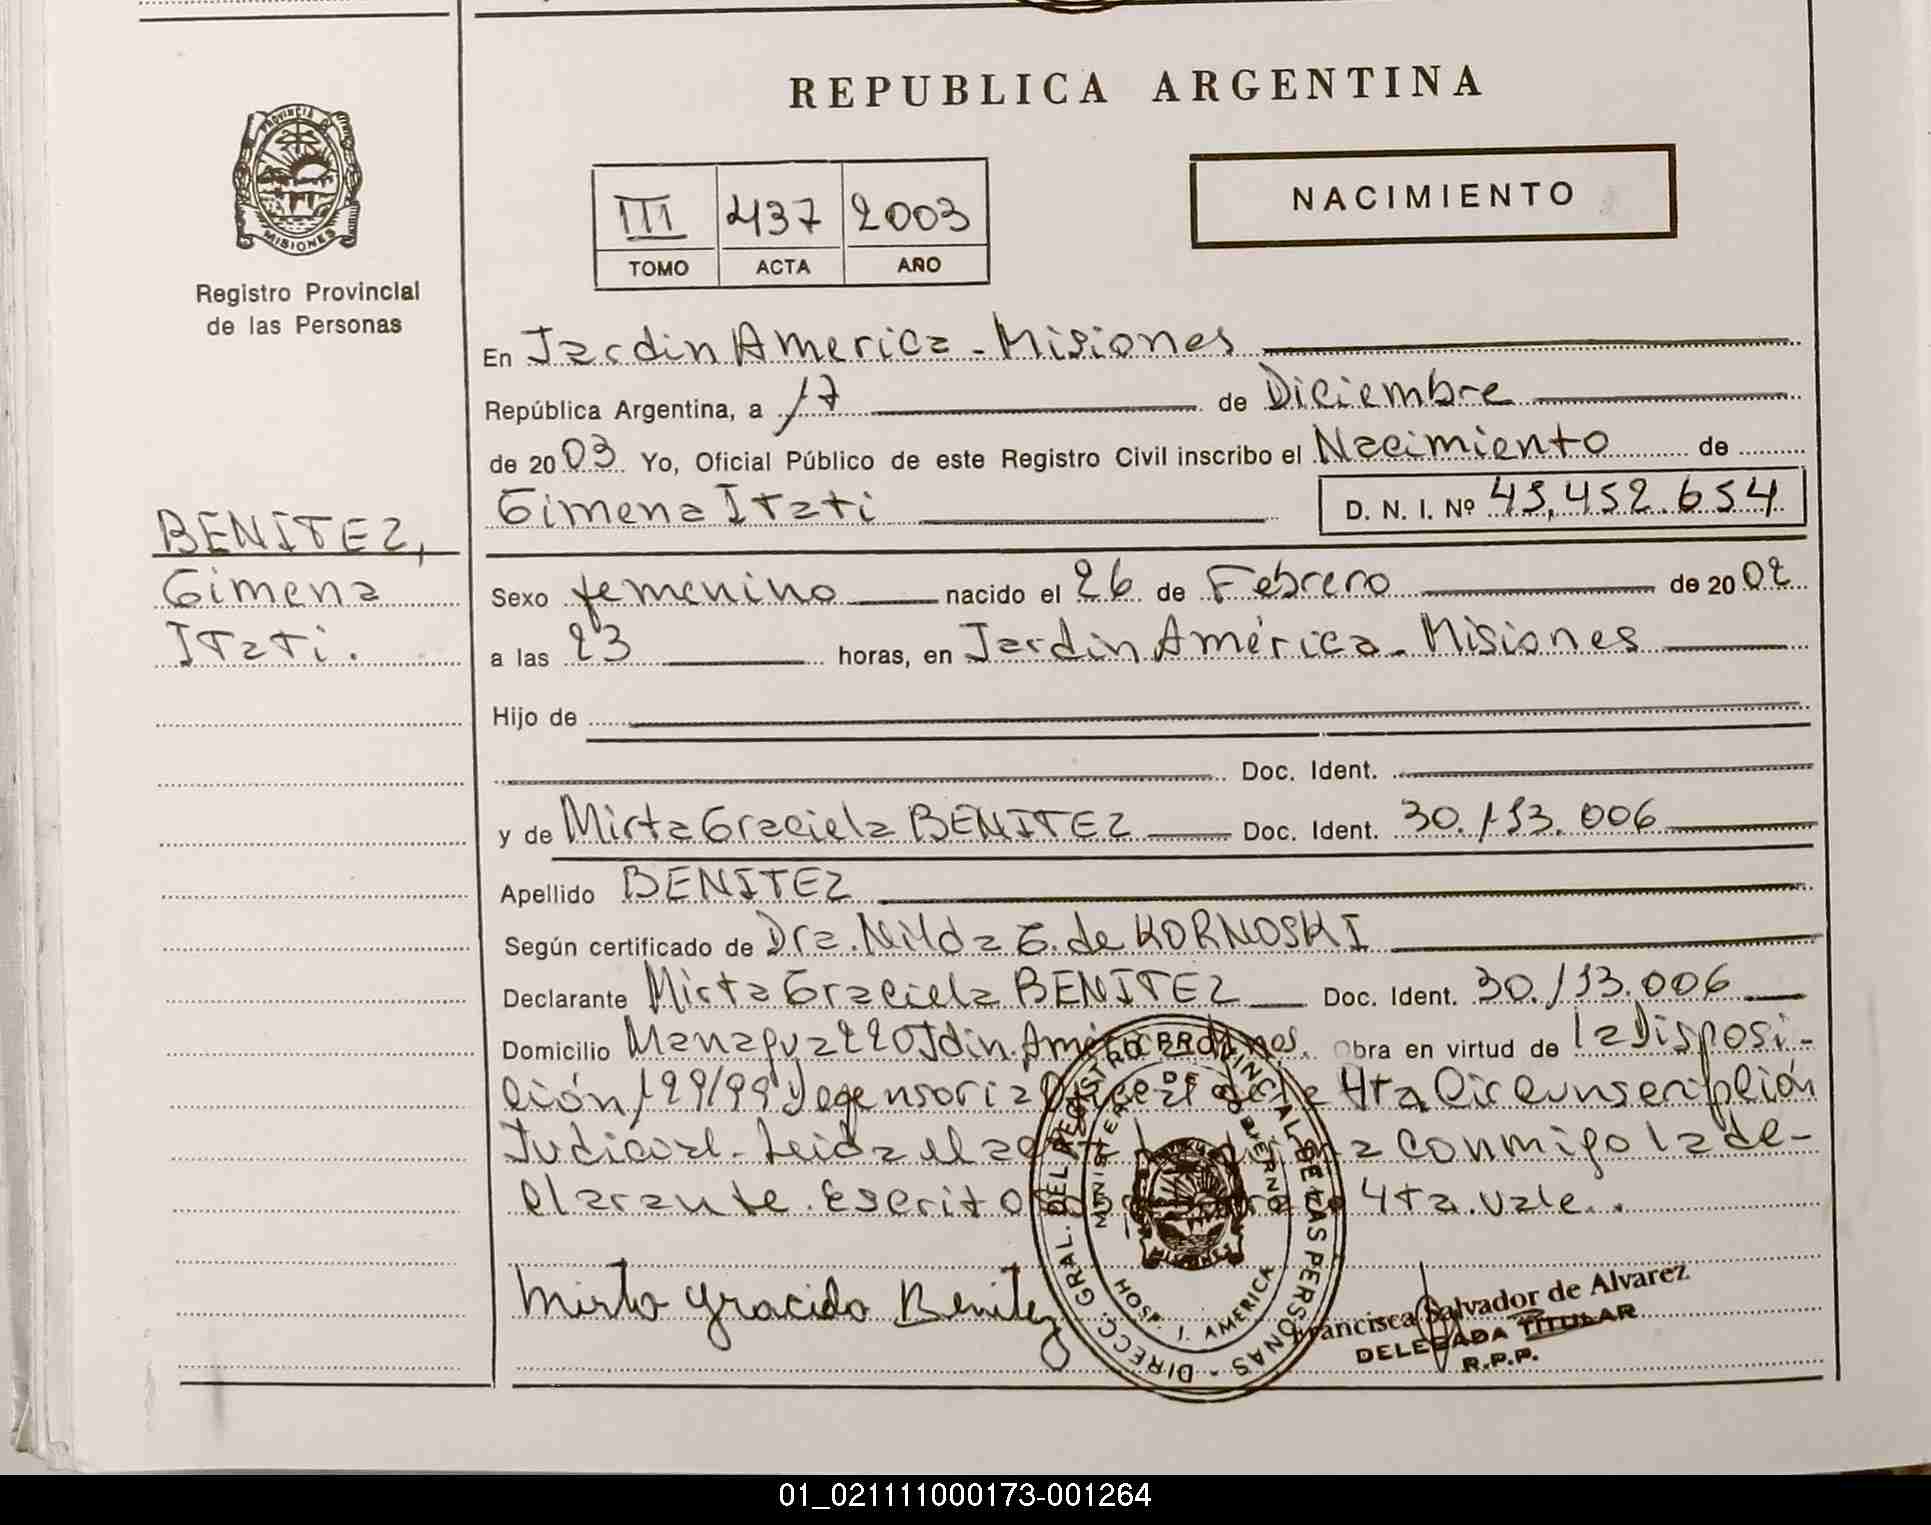 REPUBLICA ARGENTINA
PROVINCIA DE
MISIONES
Registro Provincial
de las Personas
III 437 2003
TOMO ACTA AÑO
NACIMIENTO
En Jardin America - Misiones
República Argentina, a 17 de Diciembre
de 2003 Yo, Oficial Público de este Registro Civil inscribo el Nacimiento de
Gimena Itati D. N. I. Nº 45,452.654
BENITEZ,
Gimena
Itati.
Sexo femenino nacido el 26 de Febrero de 2002
a las 23 horas, en Jardin América - Misiones
Hijo de
Doc. Ident.
y de Mirta Graciela BENITEZ Doc. Ident. 30.113.006
Apellido BENITEZ
Según certificado de Dra. Nilda E. de KORNOSKI
Declarante Mirta Graciela BENITEZ Doc. Ident. 30.113.006
Domicilio Managua 220 Jdin. Obra en virtud de la Disposi-
ción 199/99 y 4ta Circunscripción
Judicial - Leida el conmigo la de-
clarante. Escrito 4ta. vale..
Mirta Graciela Benitez
DIRECC. GRAL. DEL REGISTRO PROVINCIAL DE LAS PERSONAS -
MINISTERIO DE GOBIERNO
MISIONES
HOSP. J. AMERICA
Francisca Salvador de Alvarez
DELEGADA TITULAR
R.P.P.
01_021111000173-001264